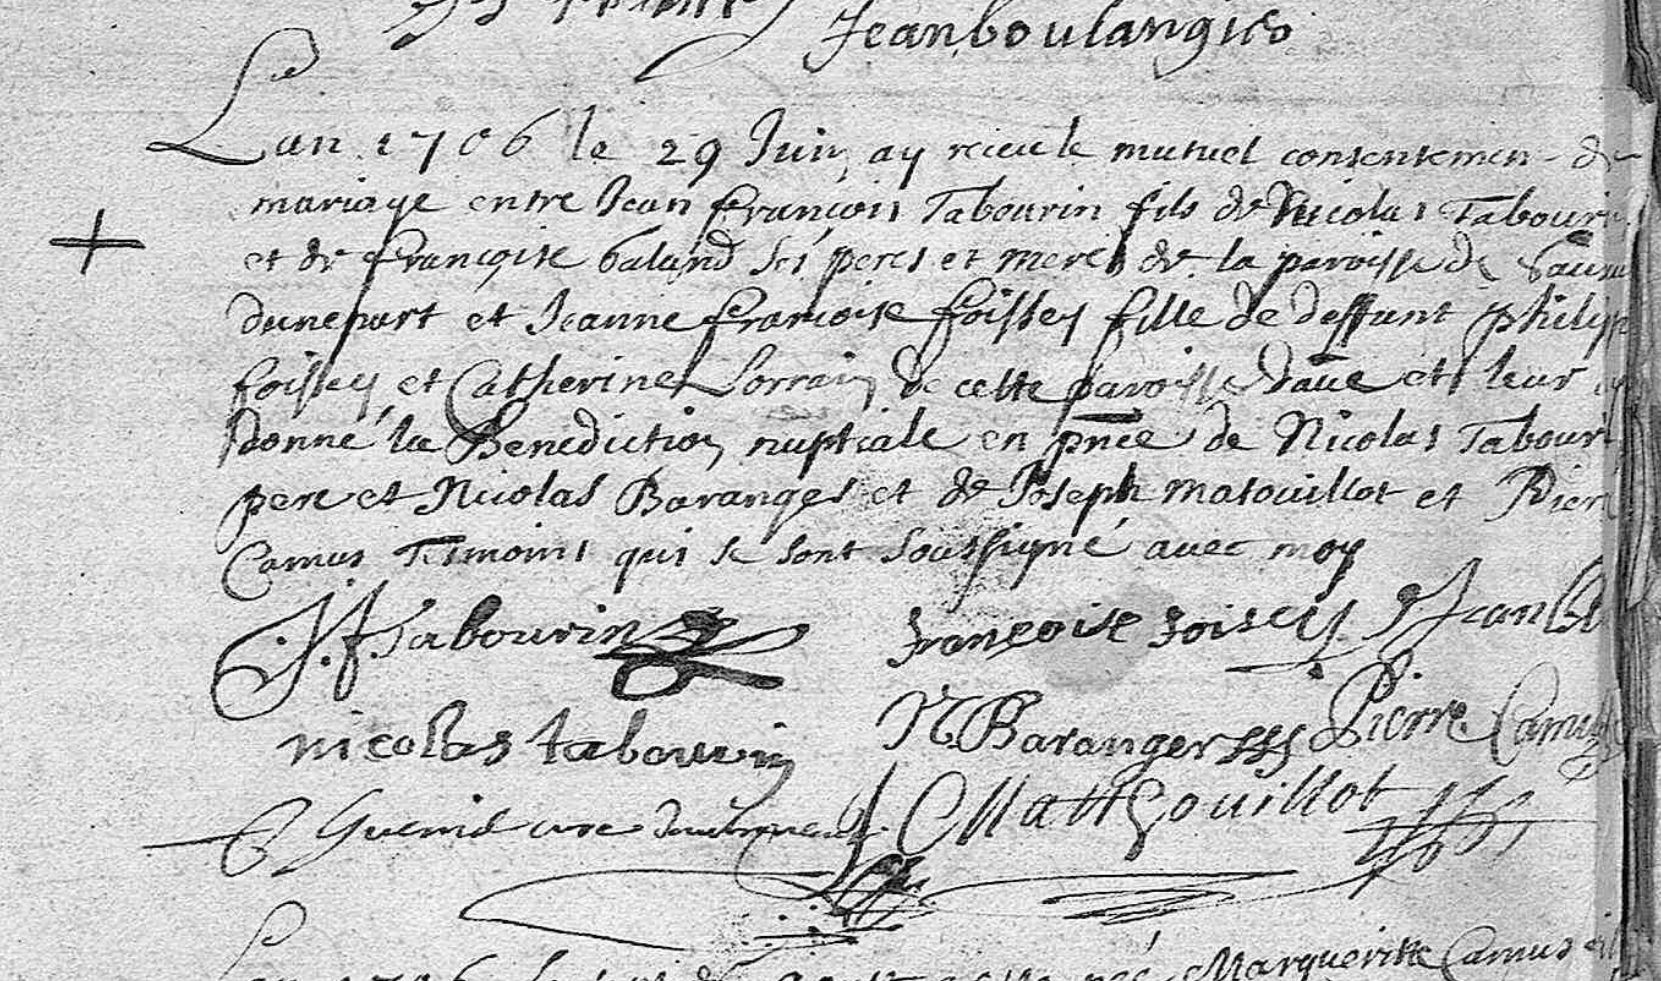 Jean boulangier
Lan 1706 le 29 Juin ay recu le mutuel consentemen de
mariage entre Jean françois Tabourin fils de Nicolas Tabouri
et de françoise Galand ses peres et meres de la paroisse de
dunepart et Jeanne françoise foissey fille de deffunt philipp
foissey et Catherine Lorrain de cette paroisse daue et leur
donné la Benediction nuptiale en pnce de Nicolas Tabouri
pere et Nicolas Baranger et de Joseph matouillot et Pierr
Camus Tesmoins qui se sont soussigné auec moy
J. f. Tabourin françoise foissey Jean
nicolas tabourin N. Baranger Pierre Camus
Guenid cure
Margueritte Camus